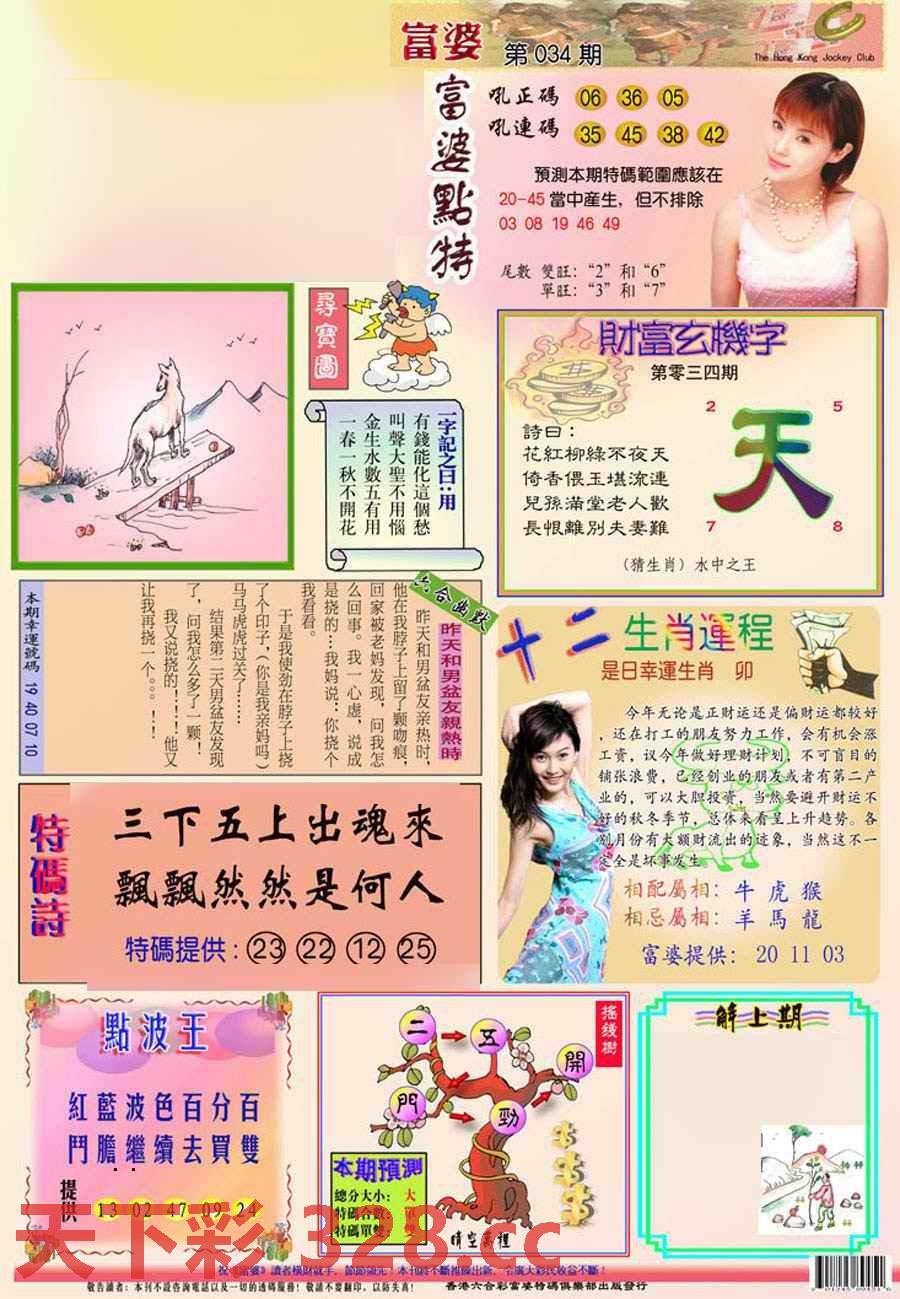 富婆 第034期
The Hong Kong Jockey Club
富婆點特
吼正碼 06 36 05
吼連碼 35 45 38 42
預測本期特碼範圍應該在
20-45當中産生，但不排除
03 08 19 46 49
尾數 雙旺：“2”和“6”
單旺：“3”和“7”
尋寶圖
一字記之曰：用
有錢能化這個愁
叫聲大聖不用惱
金生水數五有用
一春一秋不開花
財富玄機字
第零三四期
詩曰：
花紅柳綠不夜天
倚香偎玉堪流連
兒孫滿堂老人歡
長恨離別夫妻難
2 5
天
7 8
（猜生肖）水中之王
六合幽默
昨天和男盆友親熱時
昨天和男盆友亲热时，
他在我脖子上留了颗吻痕，
回家被老妈发现，问我怎
么回事。我一心虚，说成
是挠的…我妈说：你挠个
我看看。
于是我使劲在脖子上挠
了个印子，（你是我亲妈吗）
马马虎虎过关了……
结果第二天男盆友发现
了，问我怎么多了一颗！
我又说挠的！！！他又
让我再挠一个。。。！！
本期幸運號碼 19 40 07 10
十二生肖運程
是日幸運生肖 卯
今年无论是正财运还是偏财运都较好
，还在打工的朋友努力工作，会有机会涨
工资，议今年做好理财计划，不可盲目的
铺张浪费，已经创业的朋友或者有第二产
业的，可以大胆投资，当然要避开财运不
好的秋冬季节，总体来看呈上升趋势。各
别月份有大额财流出的迹象，当然这不一
定全是坏事发生
相配屬相：牛 虎 猴
相忌屬相：羊 馬 龍
富婆提供：20 11 03
特碼詩
三下五上出魂來
飄飄然然是何人
特碼提供：23 22 12 25
點波王
紅藍波色百分百
鬥膽繼續去買雙
提供
13 02 47 09 24
搖钱樹
二 五 開
門 勁
本期預測
總分大小：大
特碼合數：單
特碼單雙：雙
晴空萬裡
解上期
天下彩 328.cc
祝《富婆》讀者橫財就手，節節領先！本刊將不斷推陳出新，令廣大彩民收益不斷！
敬告讀者：本刊不設咨詢電話以及一切的透碼服務！敬請不要翻印，以防失真！
香港六合彩富婆特碼俱樂部出版發行